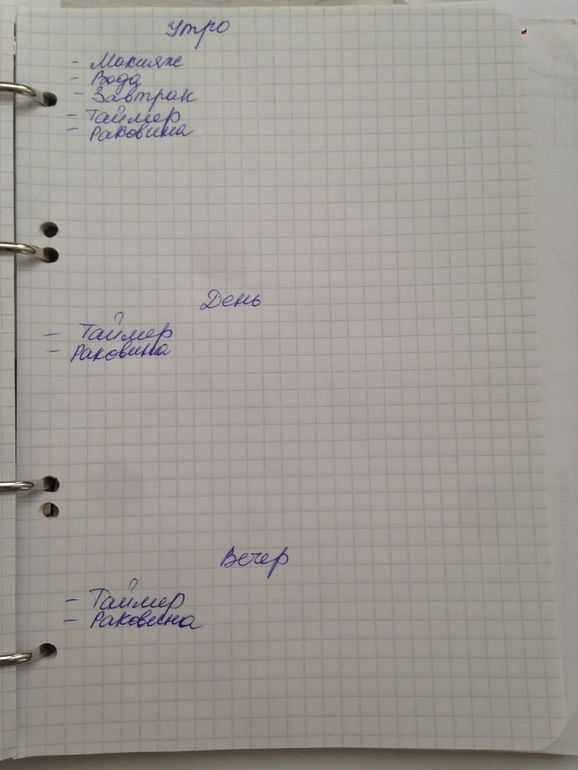 Утро
- Макияж
- Вода
- Завтрак
- Таймер
- Раковина
День
- Таймер
- Раковина
Вечер
- Таймер
- Раковина